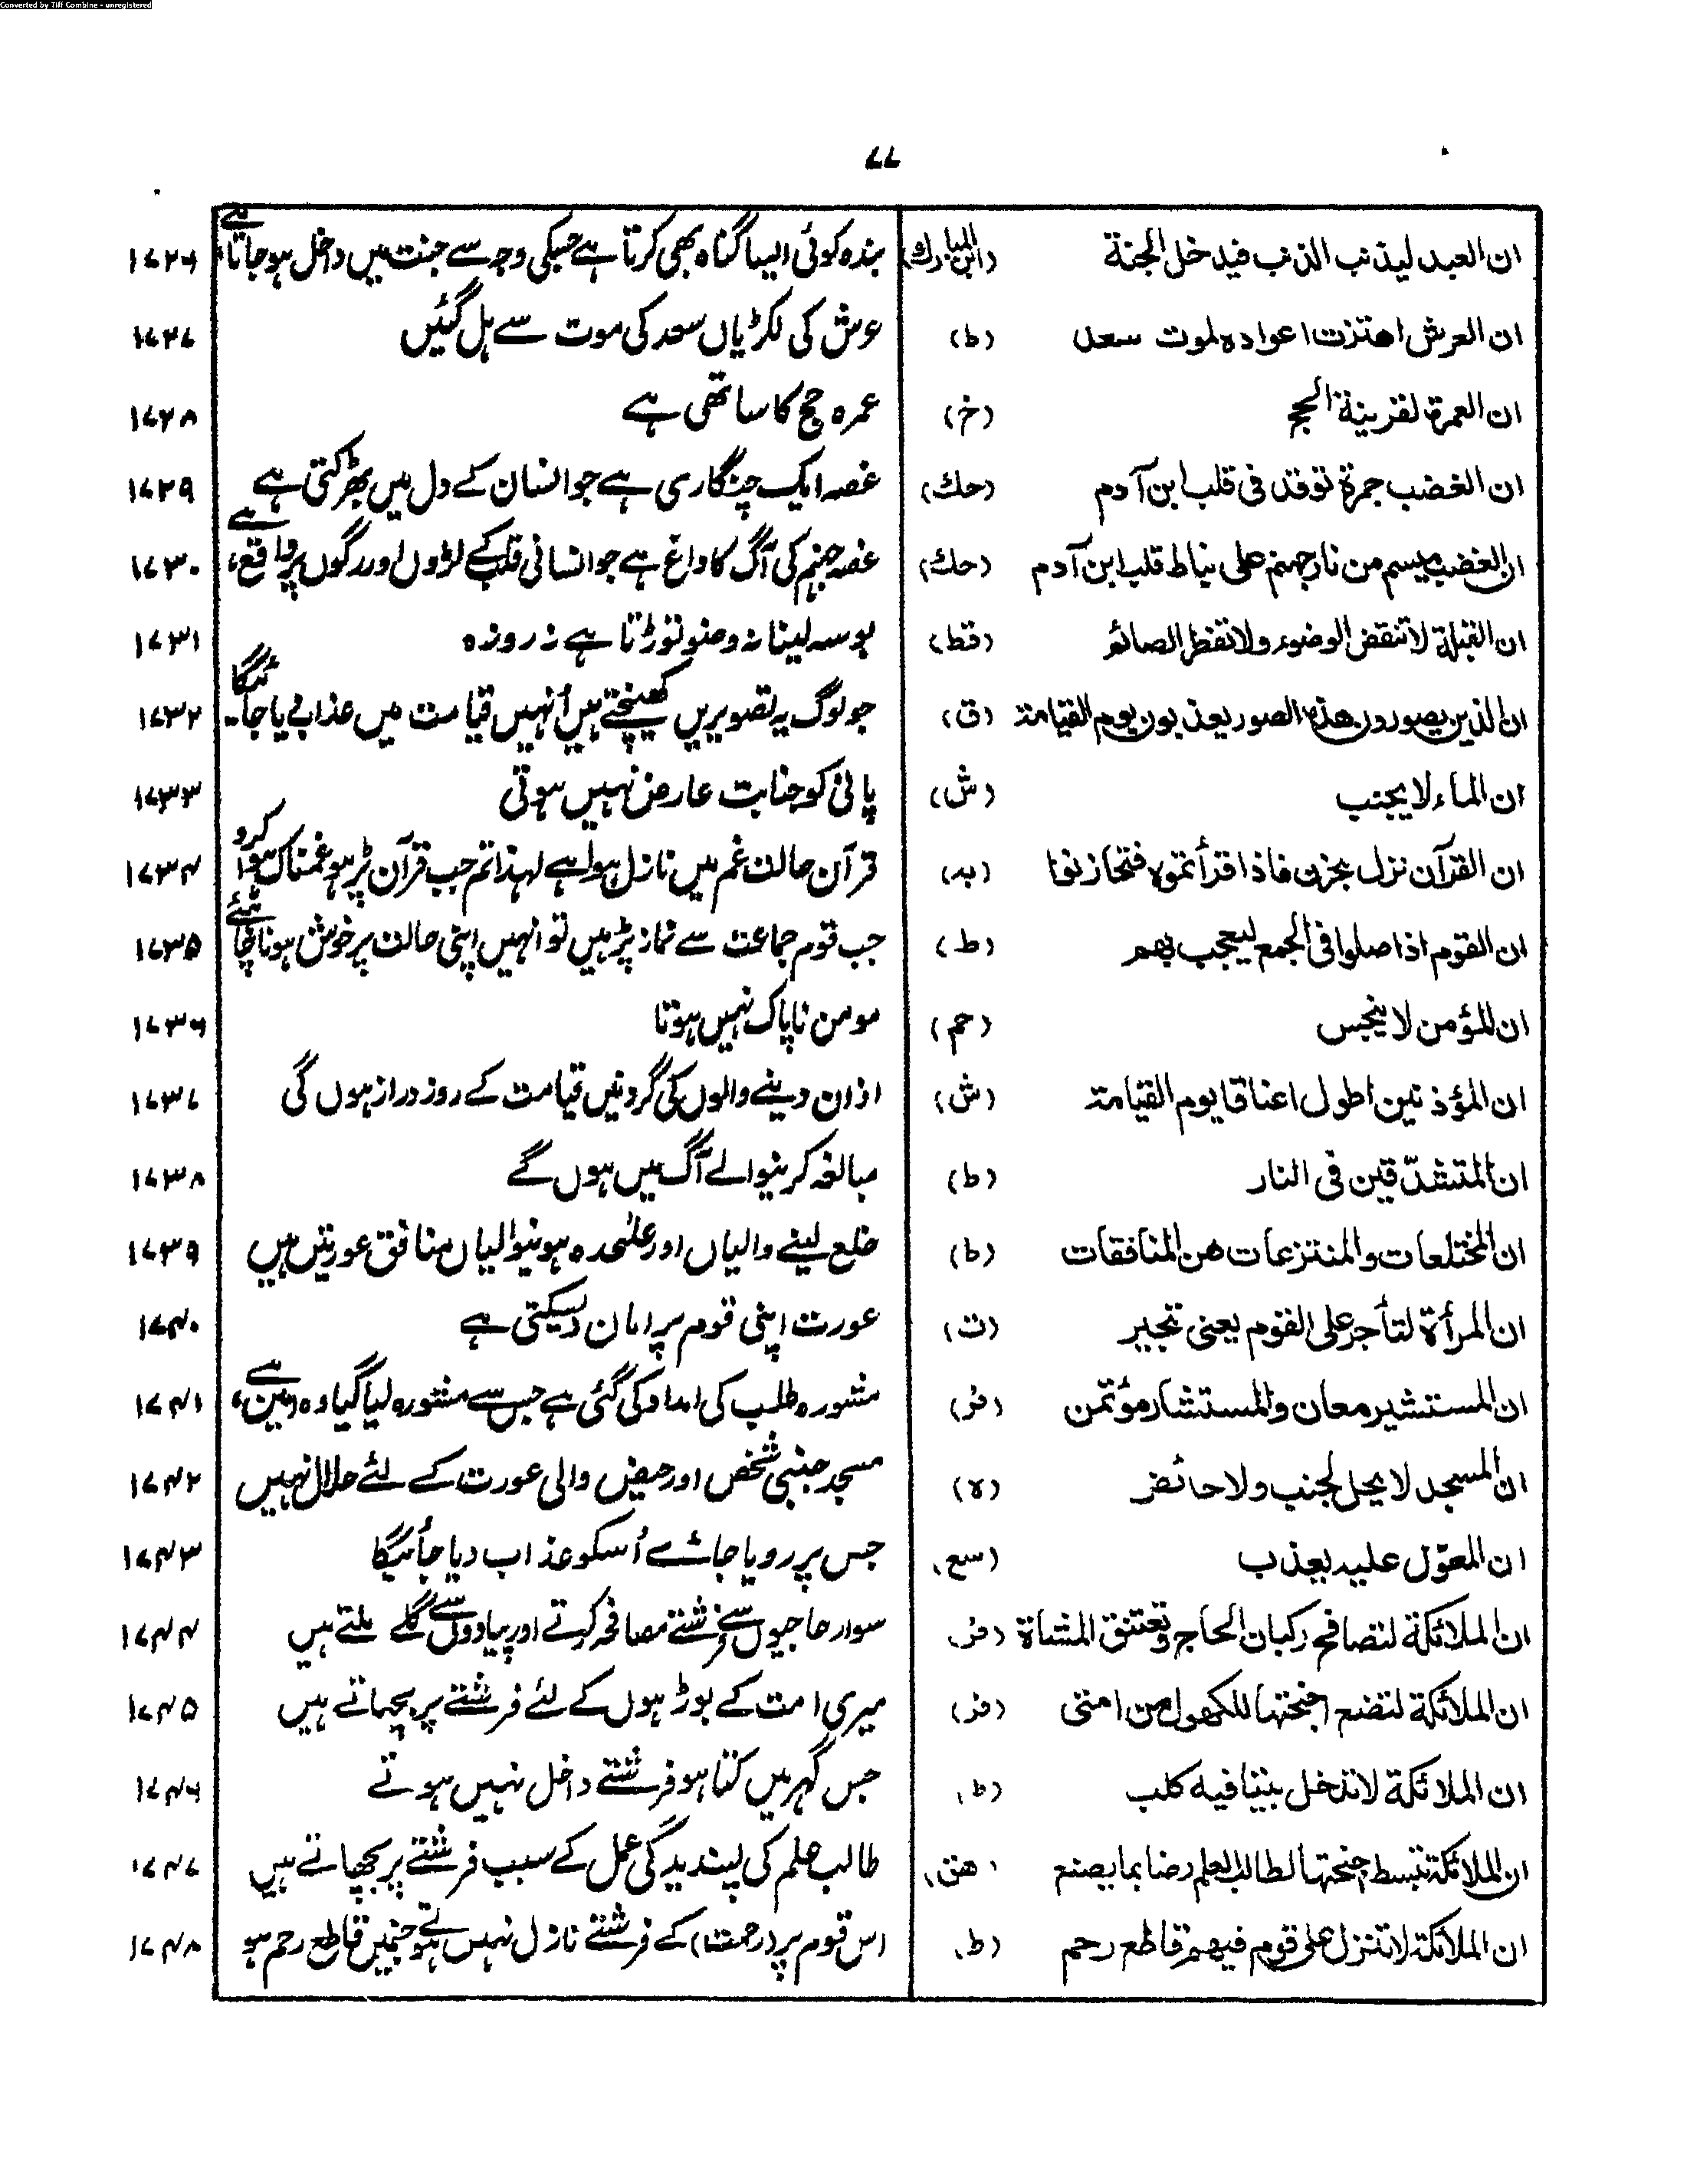 Converted by Tiff Combine - unregistered
۷۷
ان العبد ليذنب الذنب فيدخل الجنة (ابن المبارك) بندہ کوئی ایسا گناہ بھی کرتا ہے جسکی وجہ سے جنت میں داخل ہو جاتا ہے ۱۷۲۶
ان العرش اهتزت اعواده لموت سعد (ط) عرش کی لکڑیاں سعد کی موت سے ہل گئیں ۱۷۲۷
ان العمرة لقرينة الحج (خ) عمرہ حج کا ساتھی ہے ۱۷۲۸
ان الغضب جمرة توقد فى قلب ابن آدم (حك) غصہ ایک چنگاری ہے جو انسان کے دل میں بھڑکتی ہے ۱۷۲۹
ان الغضب ميسم من نار جهنم على نياط قلب ابن آدم (حك) غصہ جہنم کی آگ کا داغ ہے جو انسانی قلب کے لڑوں اور رگوں پر واقع ہے ۱۷۳۰
ان القبلة لا تنقض الوضوء ولا تفطر الصائم (قط) بوسہ لینا نہ وضو توڑتا ہے نہ روزہ ۱۷۳۱
ان الذين يصورون هذه الصور يعذبون يوم القيامة (ق) جو لوگ یہ تصویریں کھینچتے ہیں اُنہیں قیامت میں عذاب دیا جائیگا ۱۷۳۲
ان الماء لا يجنب (ش) پانی کو جنابت عارض نہیں ہوتی ۱۷۳۳
ان القرآن نزل بحزن فاذا قرأتموه فتحازنوا (بد) قرآن حالت غم میں نازل ہوا ہے لہذا تم جب قرآن پڑہو غمناک ہوا کرو ۱۷۳۴
ان القوم اذا صلوا فى الجمع ليعجب بهم (ط) جب قوم جماعت سے نماز پڑہیں تو انہیں اپنی حالت پر خوش ہونا چاہئے ۱۷۳۵
ان المؤمن لا ينجس (حم) مومن ناپاک نہیں ہوتا ۱۷۳۶
ان المؤذنين اطول اعناقا يوم القيامة (ش) اذان دینے والوں کی گردنیں قیامت کے روز دراز ہوں گی ۱۷۳۷
ان المتشدّقين فى النار (ط) مبالغہ کرنیوالے آگ میں ہوں گے ۱۷۳۸
ان المختلعات والمنتزعات هن المنافقات (ط) خلع لینے والیاں اور علٰحدہ ہونیوالیاں منافق عورتیں ہیں ۱۷۳۹
ان المرأة لتأجر على القوم يعنى تجير (ت) عورت اپنی قوم پر امان دیسکتی ہے ۱۷۴۰
ان المستشير معان والمستشار مؤتمن (فر) مشورہ طلب کی امداد کی گئی ہے جس سے مشورہ لیا گیا وہ امین ہے ۱۷۴۱
ان المسجد لا يحل لجنب ولا حائض (ہ) مسجد جنبی شخص اور حیض والی عورت کے لئے حلال نہیں ۱۷۴۲
ان المعوّل عليه يعذب (سع) جس پر رویا جائے اُسکو عذاب دیا جائیگا ۱۷۴۳
ان الملائكة لتصافح ركبان الحاج وتعتنق المشاة (فر) سوار حاجیوں سے فرشتے مصافحہ کرتے اور پیادوں سے گلے ملتے ہیں ۱۷۴۴
ان الملائكة لتضع اجنحتها للكهول من امتى (فر) میری امت کے بوڑہوں کے لئے فرشتے پر بچہاتے ہیں ۱۷۴۵
ان الملائكة لا تدخل بيتا فيه كلب (ط) جس گہر میں کتا ہو فرشتے داخل نہیں ہوتے ۱۷۴۶
ان الملائكة تبسط اجنحتها لطالب العلم رضا بما يصنع (هق) طالب علم کی پسندیدگی عمل کے سبب فرشتے پر بچھاتے ہیں ۱۷۴۷
ان الملائكة لا تتنزل على قوم فيهم قاطع رحم (ط) اس قوم پر (رحمت) کے فرشتے نازل نہیں ہوتے جنمیں قاطع رحم ہو ۱۷۴۸